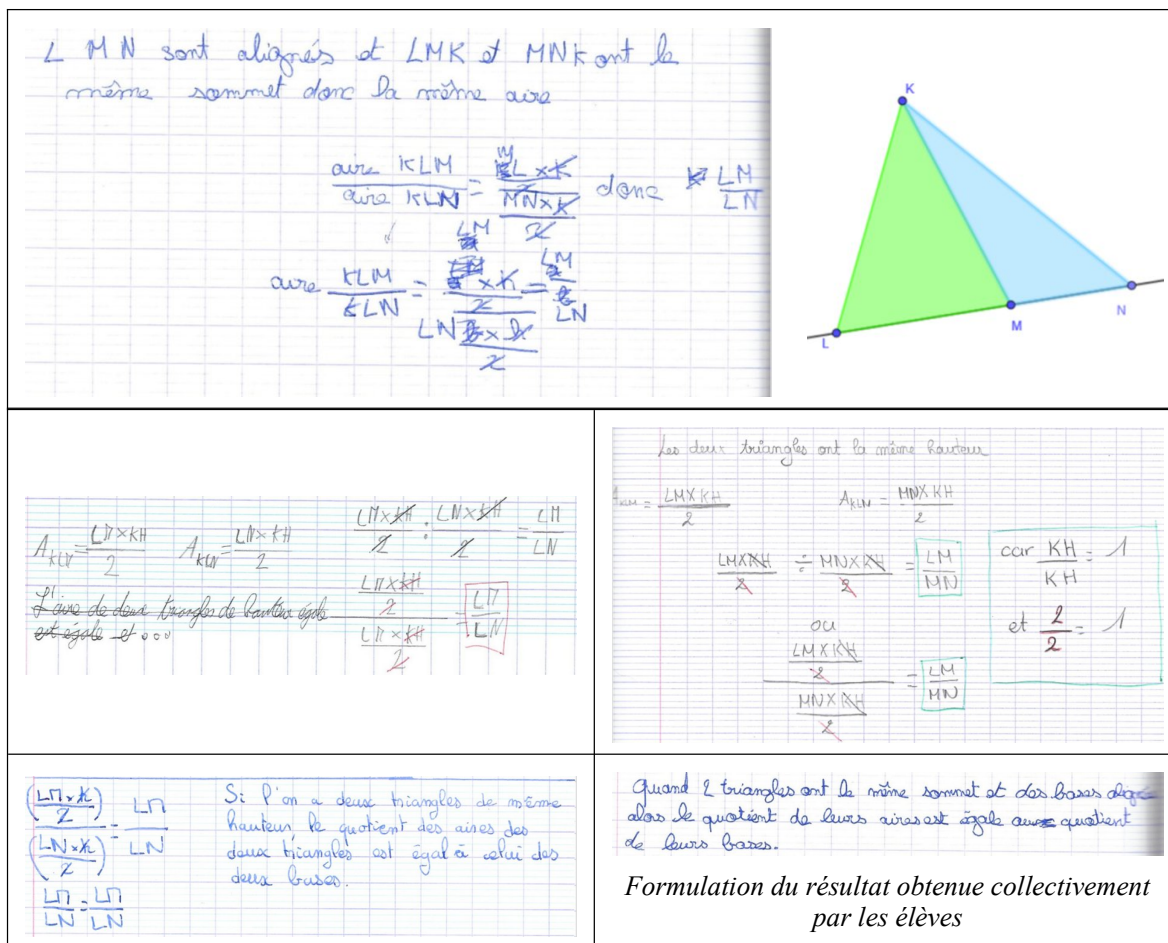 L M N sont alignés et LMK et MNK ont le
même sommet donc la même aire
aire KLM / aire KLN = L × K / 2 / MN × K / 2 donc LM / LN
aire KLM / KLN = LM × K / 2 / LN × 2 = LM / LN
K
L
M
N
A_KLM = LM×KH / 2 A_KLN = LN×KH / 2 LM×KH / 2 : LN×KH / 2 = LM / LN
L'aire de deux triangles de hauteur égale
est égale et ...
LM×KH / 2 / LM×KH / 2 = LM / LN
Les deux triangles ont la même hauteur
A_KLM = LM×KH / 2 A_KLN = MN×KH / 2
LM×KH / 2 ÷ MN×KH / 2 = LM / MN
ou
LM×KH / 2 / MN×KH / 2 = LM / MN
car KH / KH = 1
et 2 / 2 = 1
(LM×h / 2) / (LN×h / 2) = LM / LN
LM / LN = LM / LN
Si l'on a deux triangles de même
hauteur, le quotient des aires des
deux triangles est égal à celui des
deux bases.
Quand 2 triangles ont le même sommet et des bases
alors le quotient de leurs aires est égale au quotient
de leurs bases.
Formulation du résultat obtenue collectivement
par les élèves